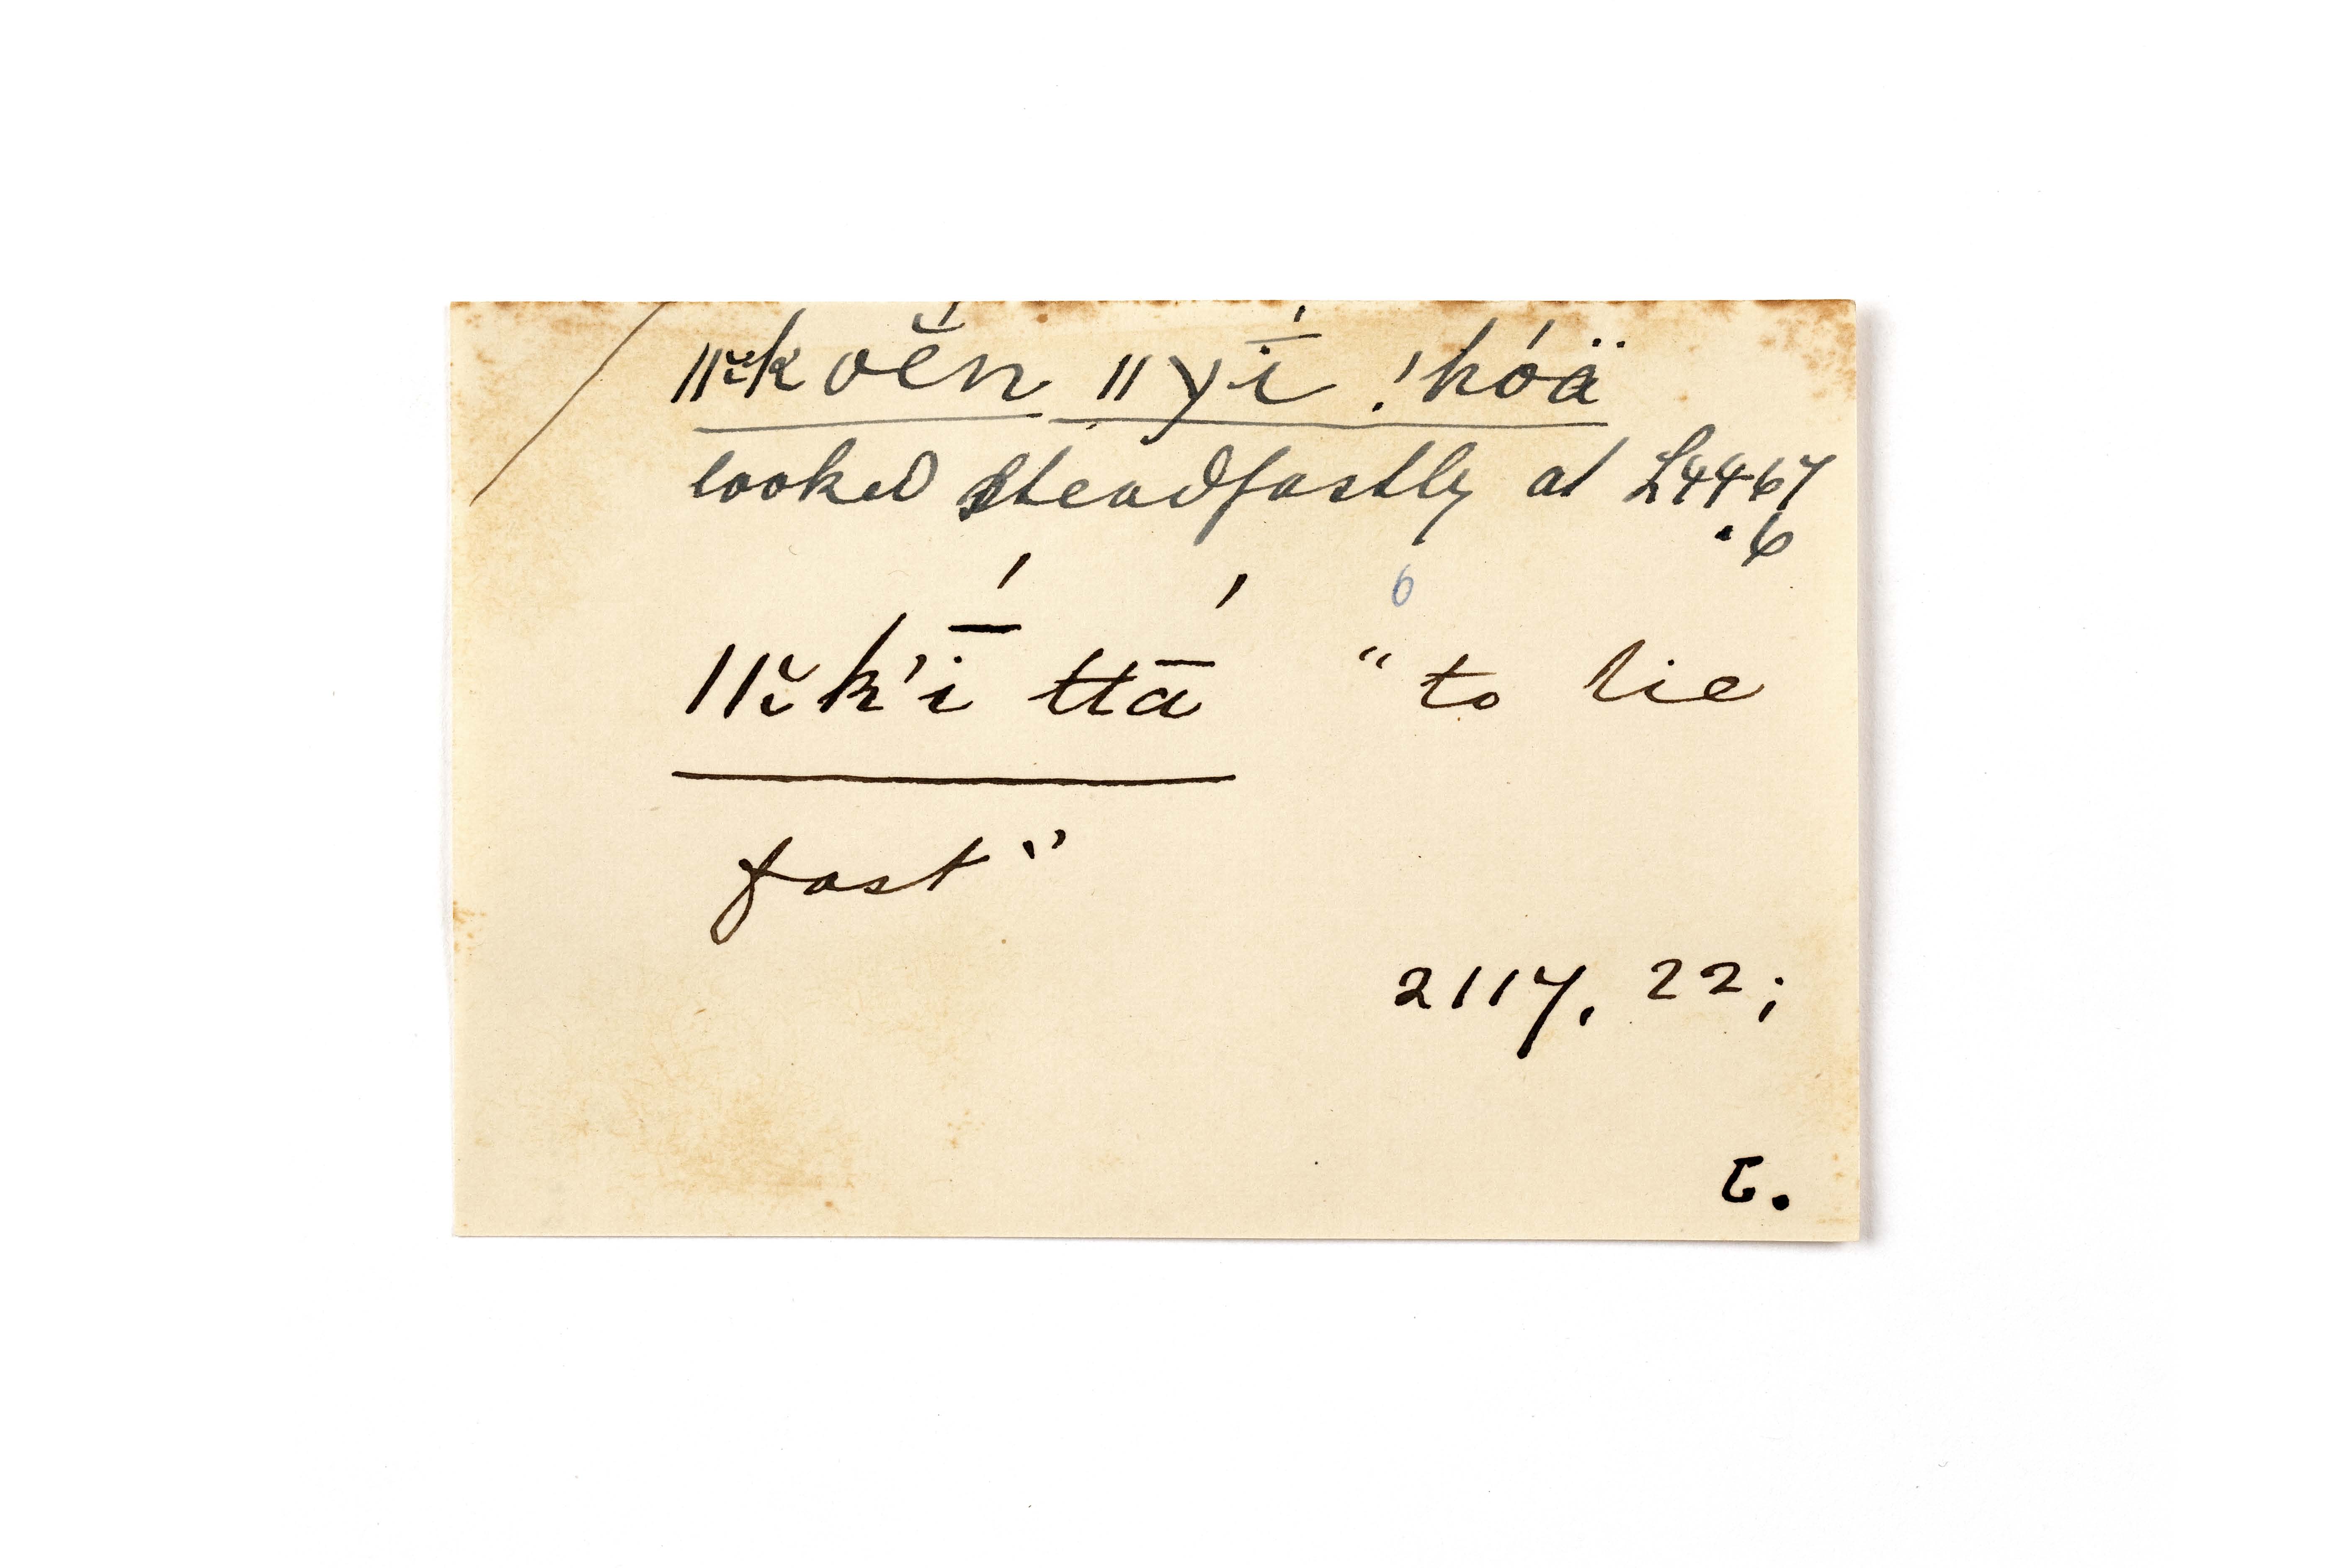 ǁ˘k oĕ́n ǁγī́ ǃhóä
looked steadfastly at L4467
.6
6
ǁ˘k'ī́ ttā́ "to lie
fast"
2117. 22;